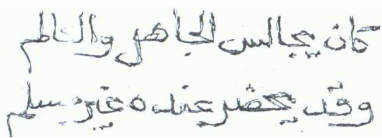 كان يجالس الجاهل والعالم
وقد يحضر عنده غير مسلم